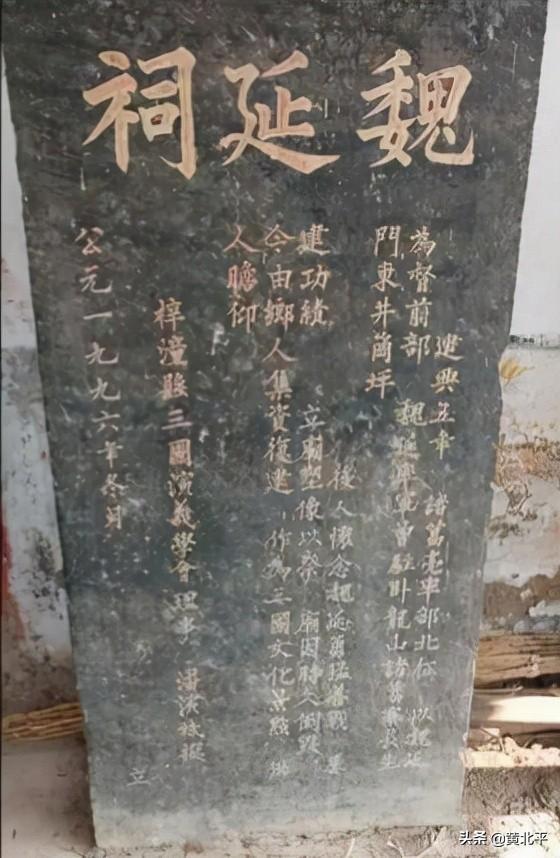 魏延祠
建興五年 諸葛亮率部北伐 以魏延
為督前部 魏延 軍曾駐卧龍山諸葛寨長生
門東井崗坪
後人懷念魏延勇猛善戰 屢
建功績 立廟塑像以祭 廟因時久倒毀
今由鄉人集資復建，作為三國文化景點 供
人瞻仰
梓潼縣三國演義學會理事 撰
立
公元一九九六年冬月
头条 @黄北平